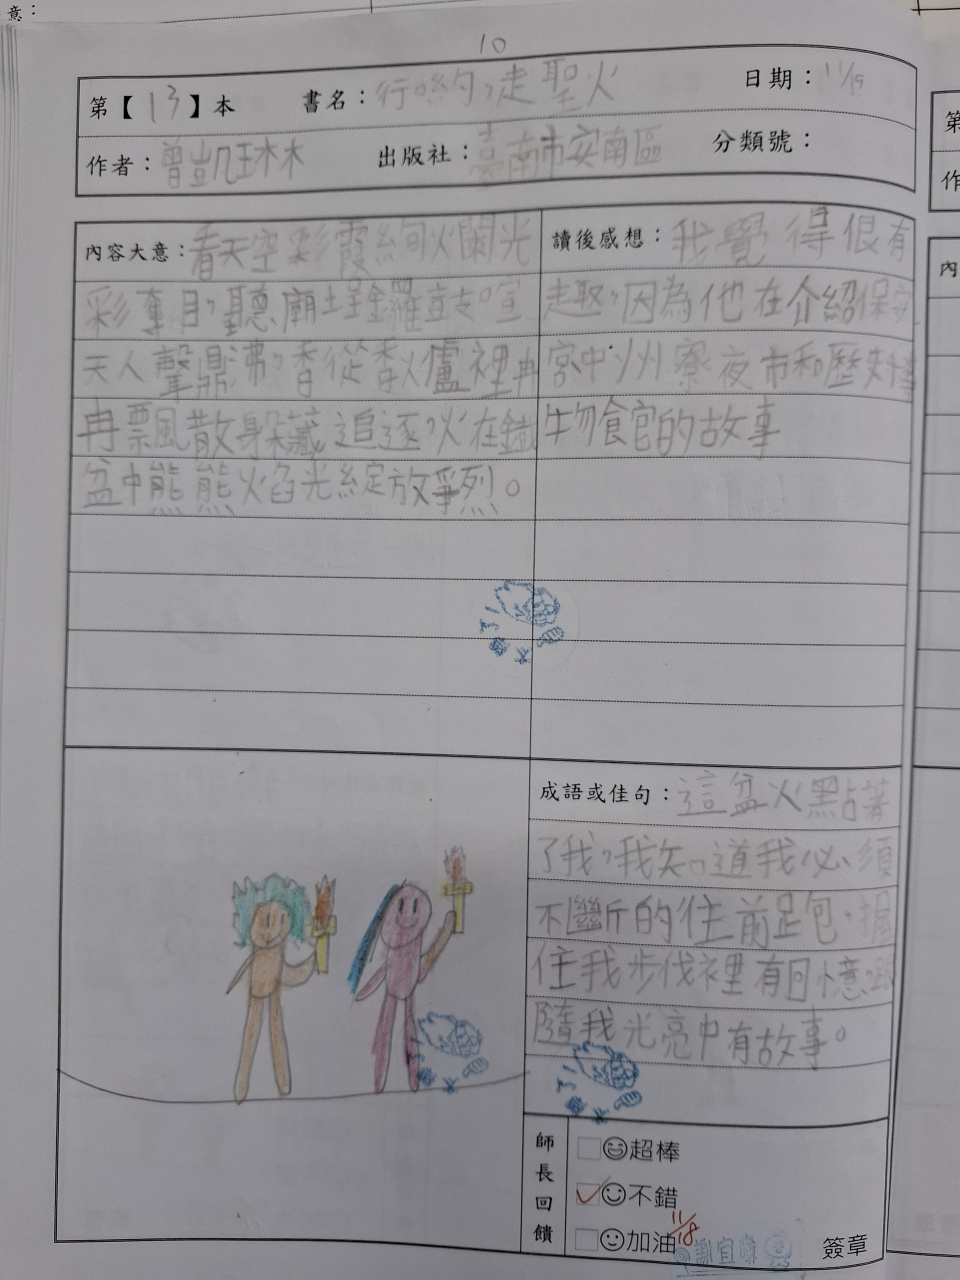 意：
10
第【13】本 書名：行喲，走聖火 日期：11/15
作者：曾凱琳 出版社：臺南市安南區 分類號：
內容大意：看天空彩霞絢火闌光
彩奪目，聽廟埕鑼鼓喧
天人聲鼎沸，香從香爐裡冉
冉飄散身躲藏追逐，火在鐵
盆中熊熊火焰光綻放爭烈。
讀後感想：我覺得很有
趣，因為他在介紹保安
宮中洲寮夜市和歷史
食宮的故事
成語或佳句：這盆火點著
了我，我知道我必須
不斷的往前
住我步伐裡有回憶
隨我光亮中有故事。
師長回饋
超棒
不錯
加油
11/8
簽章
第
作
內